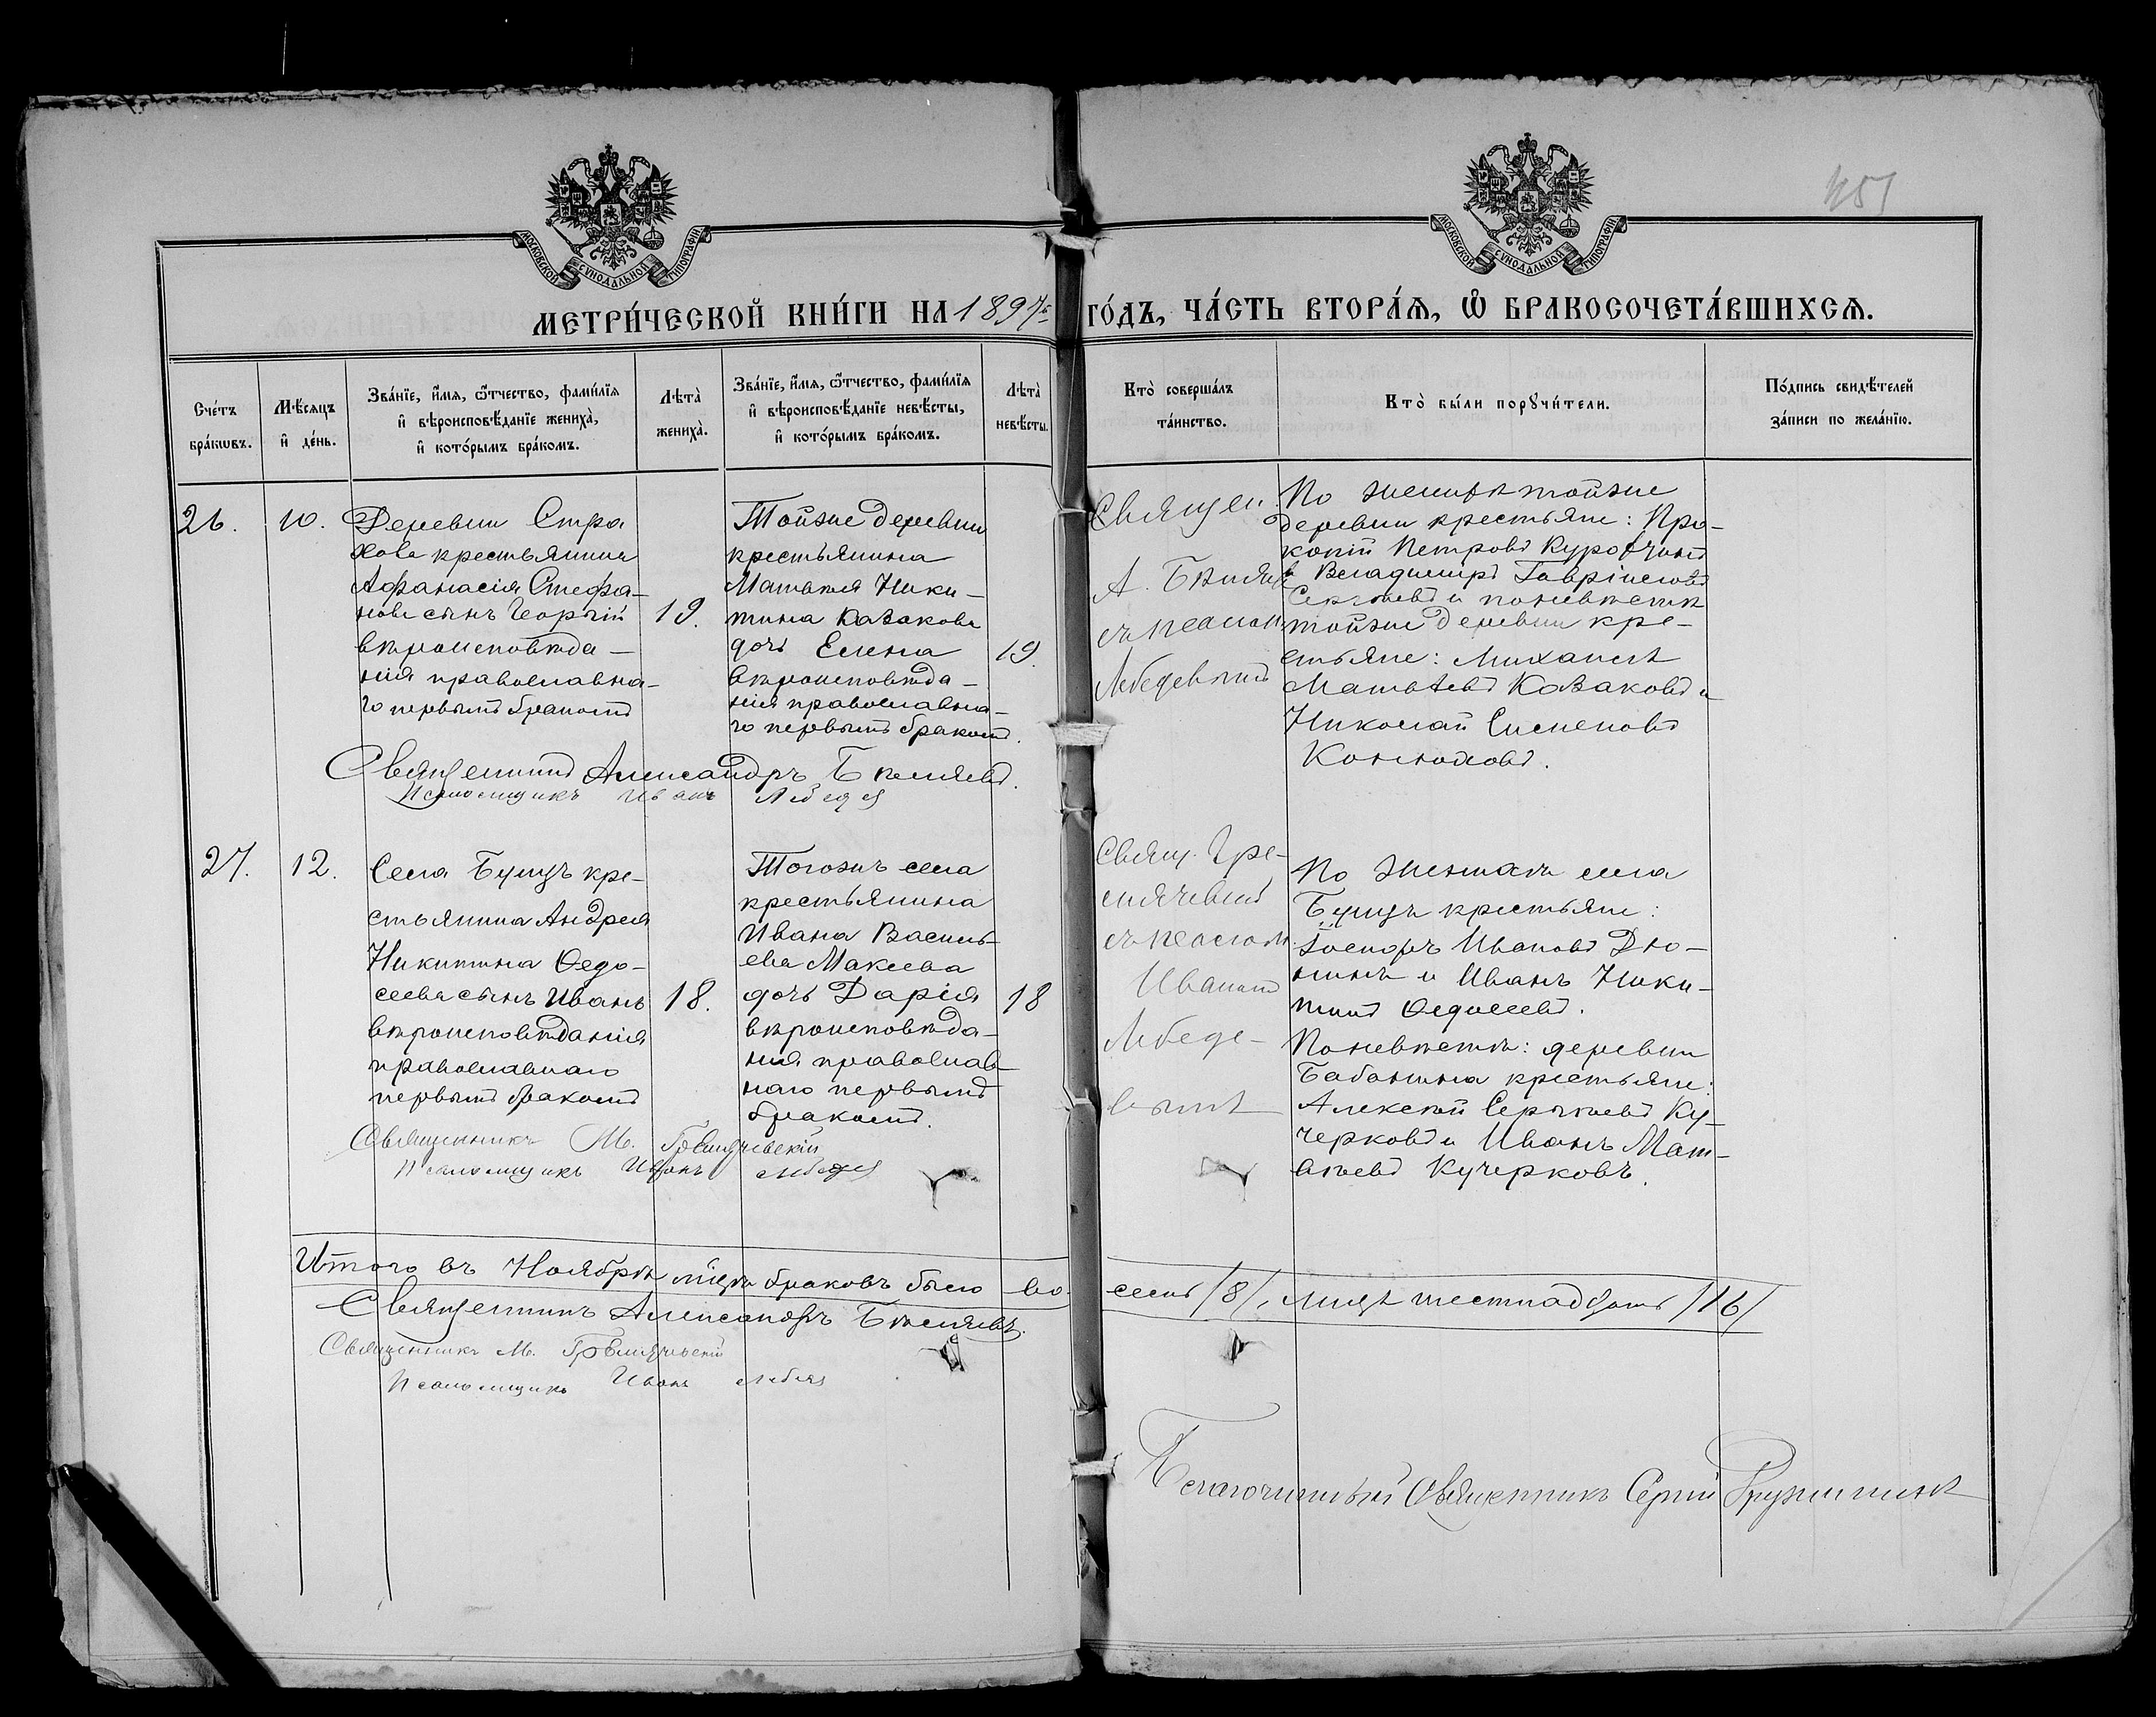 451
МОСКОВСКОЙ СѴНОДАЛЬНОЙ ТИПОГРАФІИ
МОСКОВСКОЙ СѴНОДАЛЬНОЙ ТИПОГРАФІИ
МЕТРИ́ЧЕСКОЙ КНИ́ГИ НА 1897 ГО́ДЪ, ЧА́СТЬ ВТОРА́Ѧ, Ѽ БРАКОСОЧЕТА́ВШИХСѦ.
Сче́тъ
бра́кѡвъ.
Мѣ́сяцъ
и҆ де́нь.
Зва́нїе, и҆́мѧ, ѻ҆́тчество, фами́лїѧ
и҆ вѣроисповѣ́данїе жениха̀,
и҆ кото́рымъ бра́комъ.
Лѣта̀
жениха̀.
Зва́нїе, и҆́мѧ, ѻ҆́тчество, фами́лїѧ
и҆ вѣроисповѣ́данїе невѣ́сты,
и҆ кото́рымъ бра́комъ.
Лѣта̀
невѣ́сты.
Кто̀ соверша́лъ
та́инство.
Кто̀ бы́ли порꙋчи́тели.
По́дпись свидѣ́телей
за́писи по жела́нїю.
26.
10.
Деревни Стра
хова крестьянина
Афанасія Стефа-
нова сынъ Георгій
вѣроисповѣда-
нія православна-
го первымъ бракомъ
19.
Тойже деревни
крестьянина
Матвея Ники-
тина Казакова
дочь Елена
вѣроисповѣда-
нія православна-
го первымъ бракомъ.
19.
Священ.
А. Бѣляевъ
съ псалом.
Лебедевымъ
По женихѣ тойже
деревни крестьяне: Про-
копій Петровъ
и Владиміръ Гавріиловъ
Сергѣевъ и по невѣстѣ
тойже деревни кре-
стьяне: Михаилъ
Матвѣевъ Казаковъ и
Николай Симеоновъ
Священникъ Александръ Бѣляевъ.
Псаломщикъ Иванъ Лебедев
27.
12.
Села Бунцъ кре-
стьянина Андрея
Никитина Ѳедо-
сеева сынъ Иванъ
вѣроисповѣданія
православнаго
первымъ бракомъ
18.
Тогожъ села
крестьянина
Ивана Василь-
ева Макеева
дочь Дарія
вѣроисповѣда-
нія православ-
наго первымъ
бракомъ.
18
Свящ. Гре-
мячевскій
съ псалом.
Иваномъ
Лебеде-
вымъ
По женихѣ села
Бунцъ крестьяне:
Иванъ Ники-
тинъ Ѳедосеевъ.
По невѣстѣ: деревни
Бабанина крестьяне:
Алексѣй Сергѣевъ Ку-
черковъ и Иванъ Мат-
вѣевъ Кучерковъ.
Священникъ М. Гремячевскій
Псаломщикъ Иванъ Лебедев
Итого въ Ноябрѣ мѣсяцѣ браковъ было во-семь /8/, лицъ шестнадцать /16/
Священникъ Александръ Бѣляевъ.
Священникъ М. Гремячевскій
Псаломщикъ Иванъ Лебедев
Благочинный Священникъ Сергій